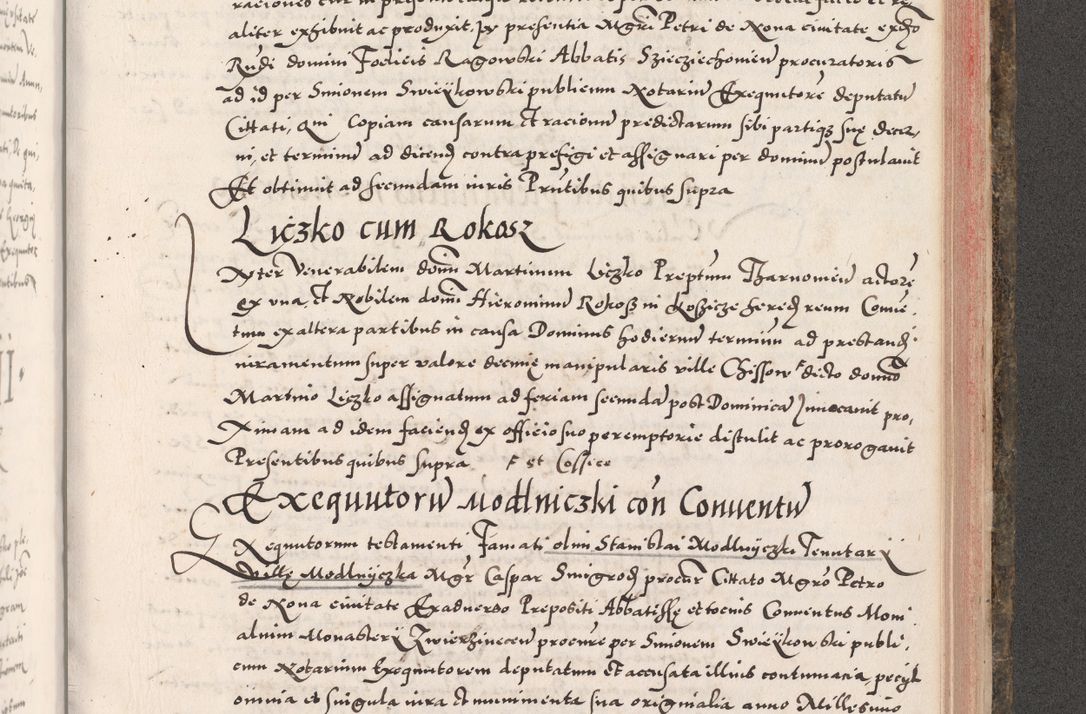 aliter exhibuit ac produxit, pr presentia Mgri Petri de Nova civitate
Rudi domini Foelicis Ragowski Abbatis Szieciechovien procuratoris
ad id per Simonem Swieykowski publicum Notariu Exequutore deputatu
Cittati, Qui Copiam causarum et racionu predictarum sibi partiqz suę decer,
ni, et terminu ad dicend contra prefigi et assignari per dominu postulavit
Et obtinuit ad secundam iuris Prntibus quibus supra
Liczko cum Rokosz
Inter Venerabilem domi Martinum Liczko Preptum Tharnovien actore
ex una et Nobilem domi Hieronimu Rokosz in Koszicze hered reum Conve,
tum ex altera partibus in causa Dominus hodiernu terminu ad prestand
iuramentum super valore decimę manipularis ville Chissow dicto domno
Martino Liczko assignatum ad feriam secunda post Dominica Invocavit pro,
ximam ad idem faciend ex officio suo peremptorie distulit ac prorogavit
Presentibus quibus supra F et Cossice
Exequutoru Modlniczki con Conventu
Exequutorum testamenti Famati olim Stanislai Modlnyczki Tenutarij
Villę Modlnyczka Mgr Caspar Smigrod procur Cittato Mgro Petro
de Nova civitate Exadverso Prepositi Abbatissę et tocius Conventus Moni
alium Monasterij Zwierzinecen procure per Simonem Swieykowski publi,
cum Notarium Exequitorem deputatum et accusata illius contumacia,
omnia et singula iura et munimenta sua originalia anno Millesimo